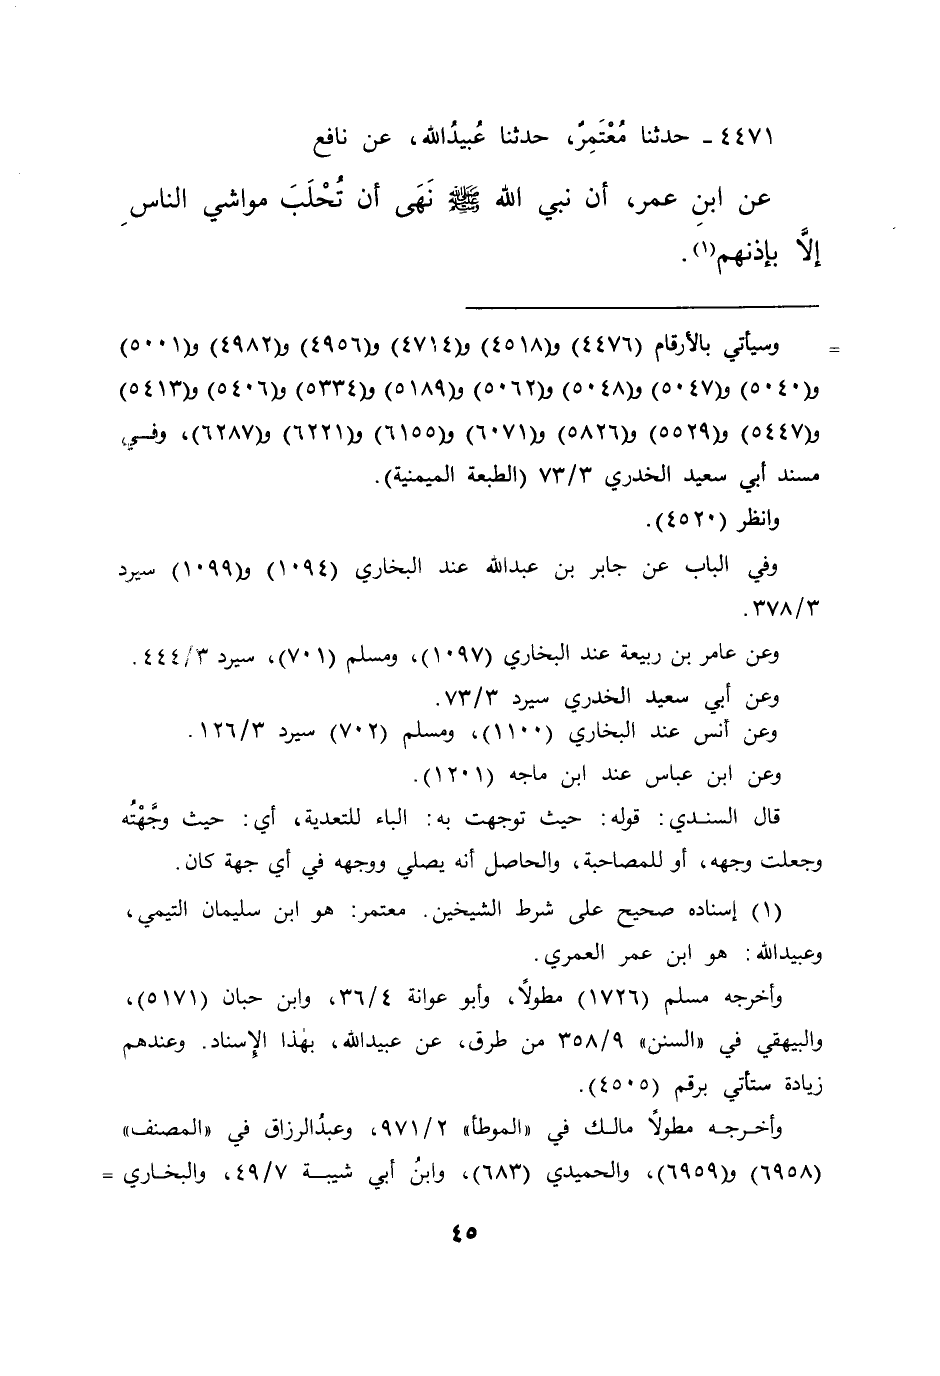 ٤٤٧١ ـ حدثنا مُعْتَمِرٌ، حدثنا عُبيدُالله، عن نافع
عن ابنِ عمر، أن نبي الله ﷺ نَهَى أن تُحْلَبَ مواشي الناسِ
إلَّا بإذنهم(١).
= وسيأتي بالأرقام (٤٤٧٦) و(٤٥١٨) و(٤٧١٤) و(٤٩٥٦) و(٤٩٨٢) و(٥٠٠١)
و(٥٠٤٠) و(٥٠٤٧) و(٥٠٤٨) و(٥٠٦٢) و(٥١٨٩) و(٥٣٣٤) و(٥٤٠٦) و(٥٤١٣)
و(٥٤٤٧) و(٥٥٢٩) و(٥٨٢٦) و(٦٠٧١) و(٦١٥٥) و(٦٢٢١) و(٦٢٨٧)، وفي
مسند أبي سعيد الخدري ٧٣/٣ (الطبعة الميمنية).
وانظر (٤٥٢٠).
وفي الباب عن جابر بن عبدالله عند البخاري (١٠٩٤) و(١٠٩٩) سيرد
٣٧٨/٣.
وعن عامر بن ربيعة عند البخاري (١٠٩٧)، ومسلم (٧٠١)، سيرد ٤٤٤/٣.
وعن أبي سعيد الخدري سيرد ٧٣/٣.
وعن أنس عند البخاري (١١٠٠)، ومسلم (٧٠٢) سيرد ١٢٦/٣.
وعن ابن عباس عند ابن ماجه (١٢٠١).
قال السندي: قوله: حيث توجهت به: الباء للتعدية، أي: حيث وجَّهْتُه
وجعلت وجهه، أو للمصاحبة، والحاصل أنه يصلي ووجهه في أي جهة كان.
(١) إسناده صحيح على شرط الشيخين. معتمر: هو ابن سليمان التيمي،
وعبيدالله: هو ابن عمر العمري.
وأخرجه مسلم (١٧٢٦) مطولًا، وأبو عوانة ٣٦/٤، وابن حبان (٥١٧١)،
والبيهقي في «السنن» ٣٥٨/٩ من طرق، عن عبيدالله، بهٰذا الإسناد. وعندهم
زيادة ستأتي برقم (٤٥٠٥).
وأخرجه مطولًا مالك في «الموطأ» ٩٧١/٢، وعبدُالرزاق في «المصنف»
(٦٩٥٨) و(٦٩٥٩)، والحميدي (٦٨٣)، وابنُ أبي شيبة ٤٩/٧، والبخاري =
٤٥